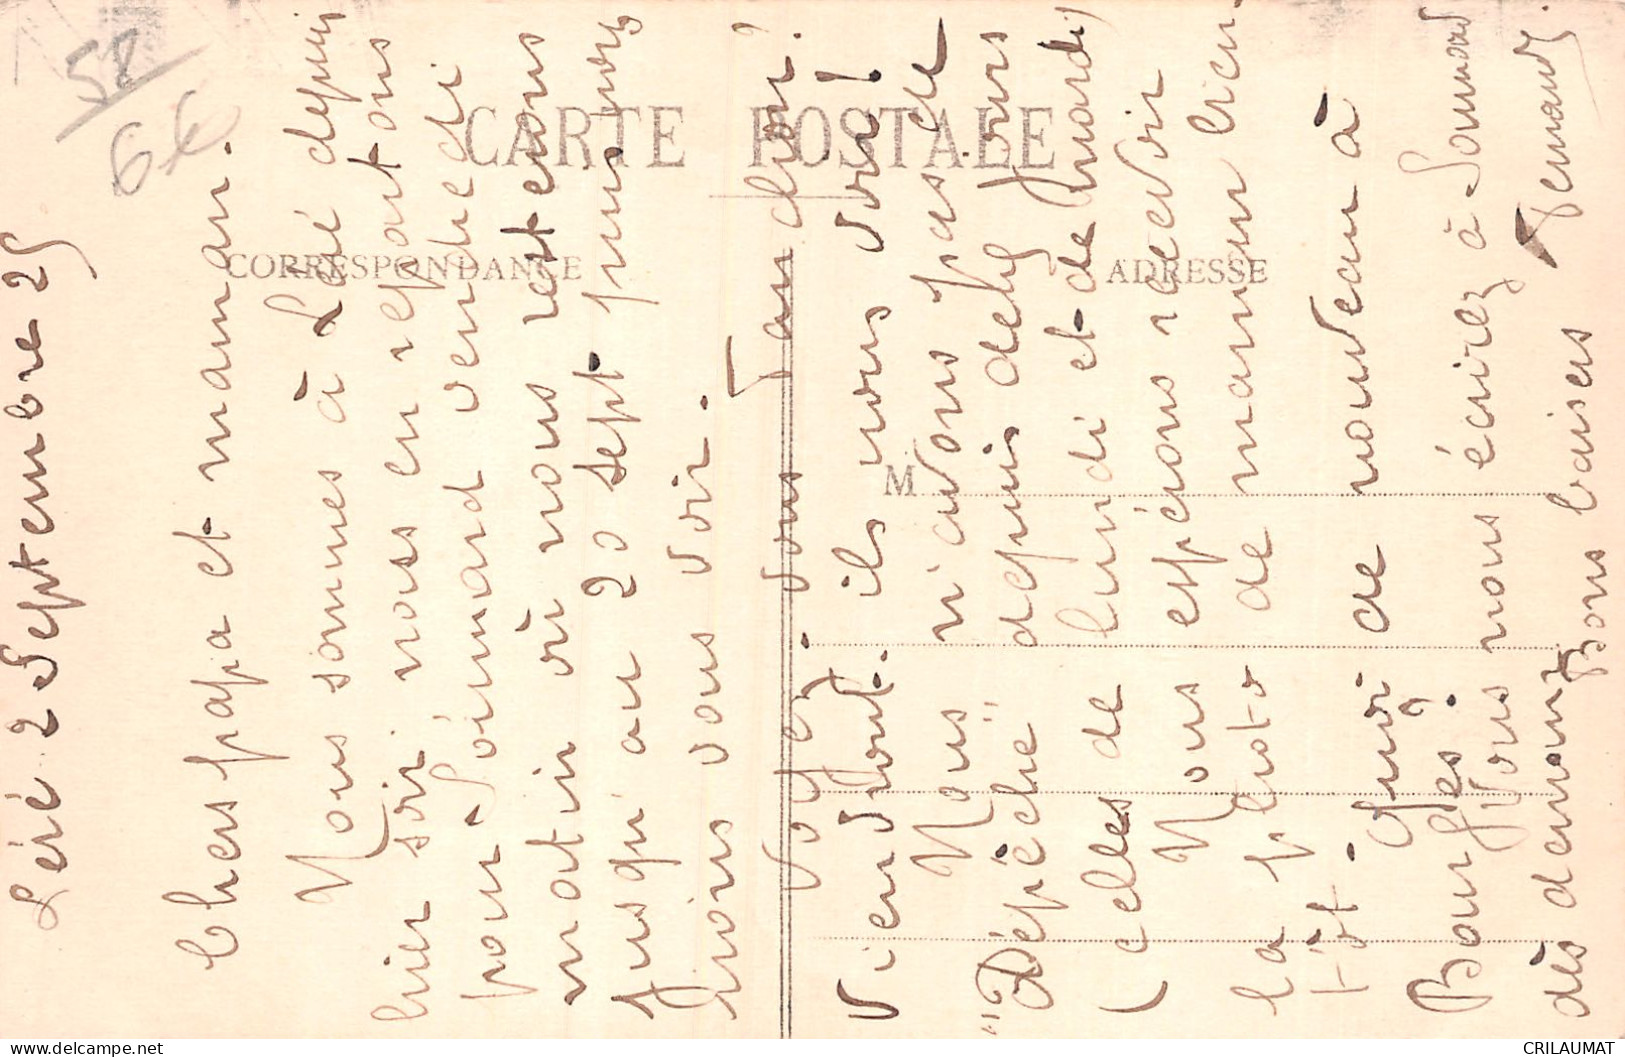 58
6€
CARTE POSTALE
CORRESPONDANCE
ADRESSE
M
Léré 2 Septembre 25
Chers papa et maman.
Nous sommes à Léré depuis
hier soir. nous en repartons
pour Soumard vendredi
matin où nous resterons
jusqu'au 20 sept puis nous
irons vous voir. Tandion?
Voyez-vous
viendront. ils nous voir!
Nous n'avons pas de
"Dépêche" depuis deux jours
(celles de lundi et de mardi)
Nous espérons recevoir
la photo de maman bien
tôt. Quoi de nouveau à
Bourges?
Vous nous écrirez à Soumard
dès demain,
Bons baisers Fernand.
CRILAUMAT